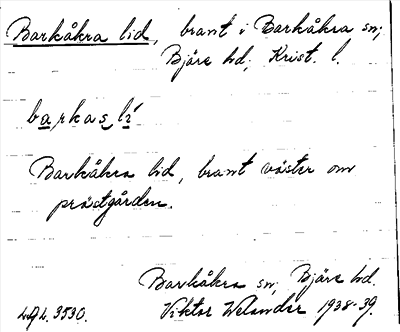 Barkåkra lid, brant i Barkåkra sn;
Bjäre hd; Krist. l.
barkas_lí
Barkåkra lid, brant väster om
prästgården.
Barkåkra sn; Bjäre hd.
LAL. 3530. Viktor Welander 1938-39.